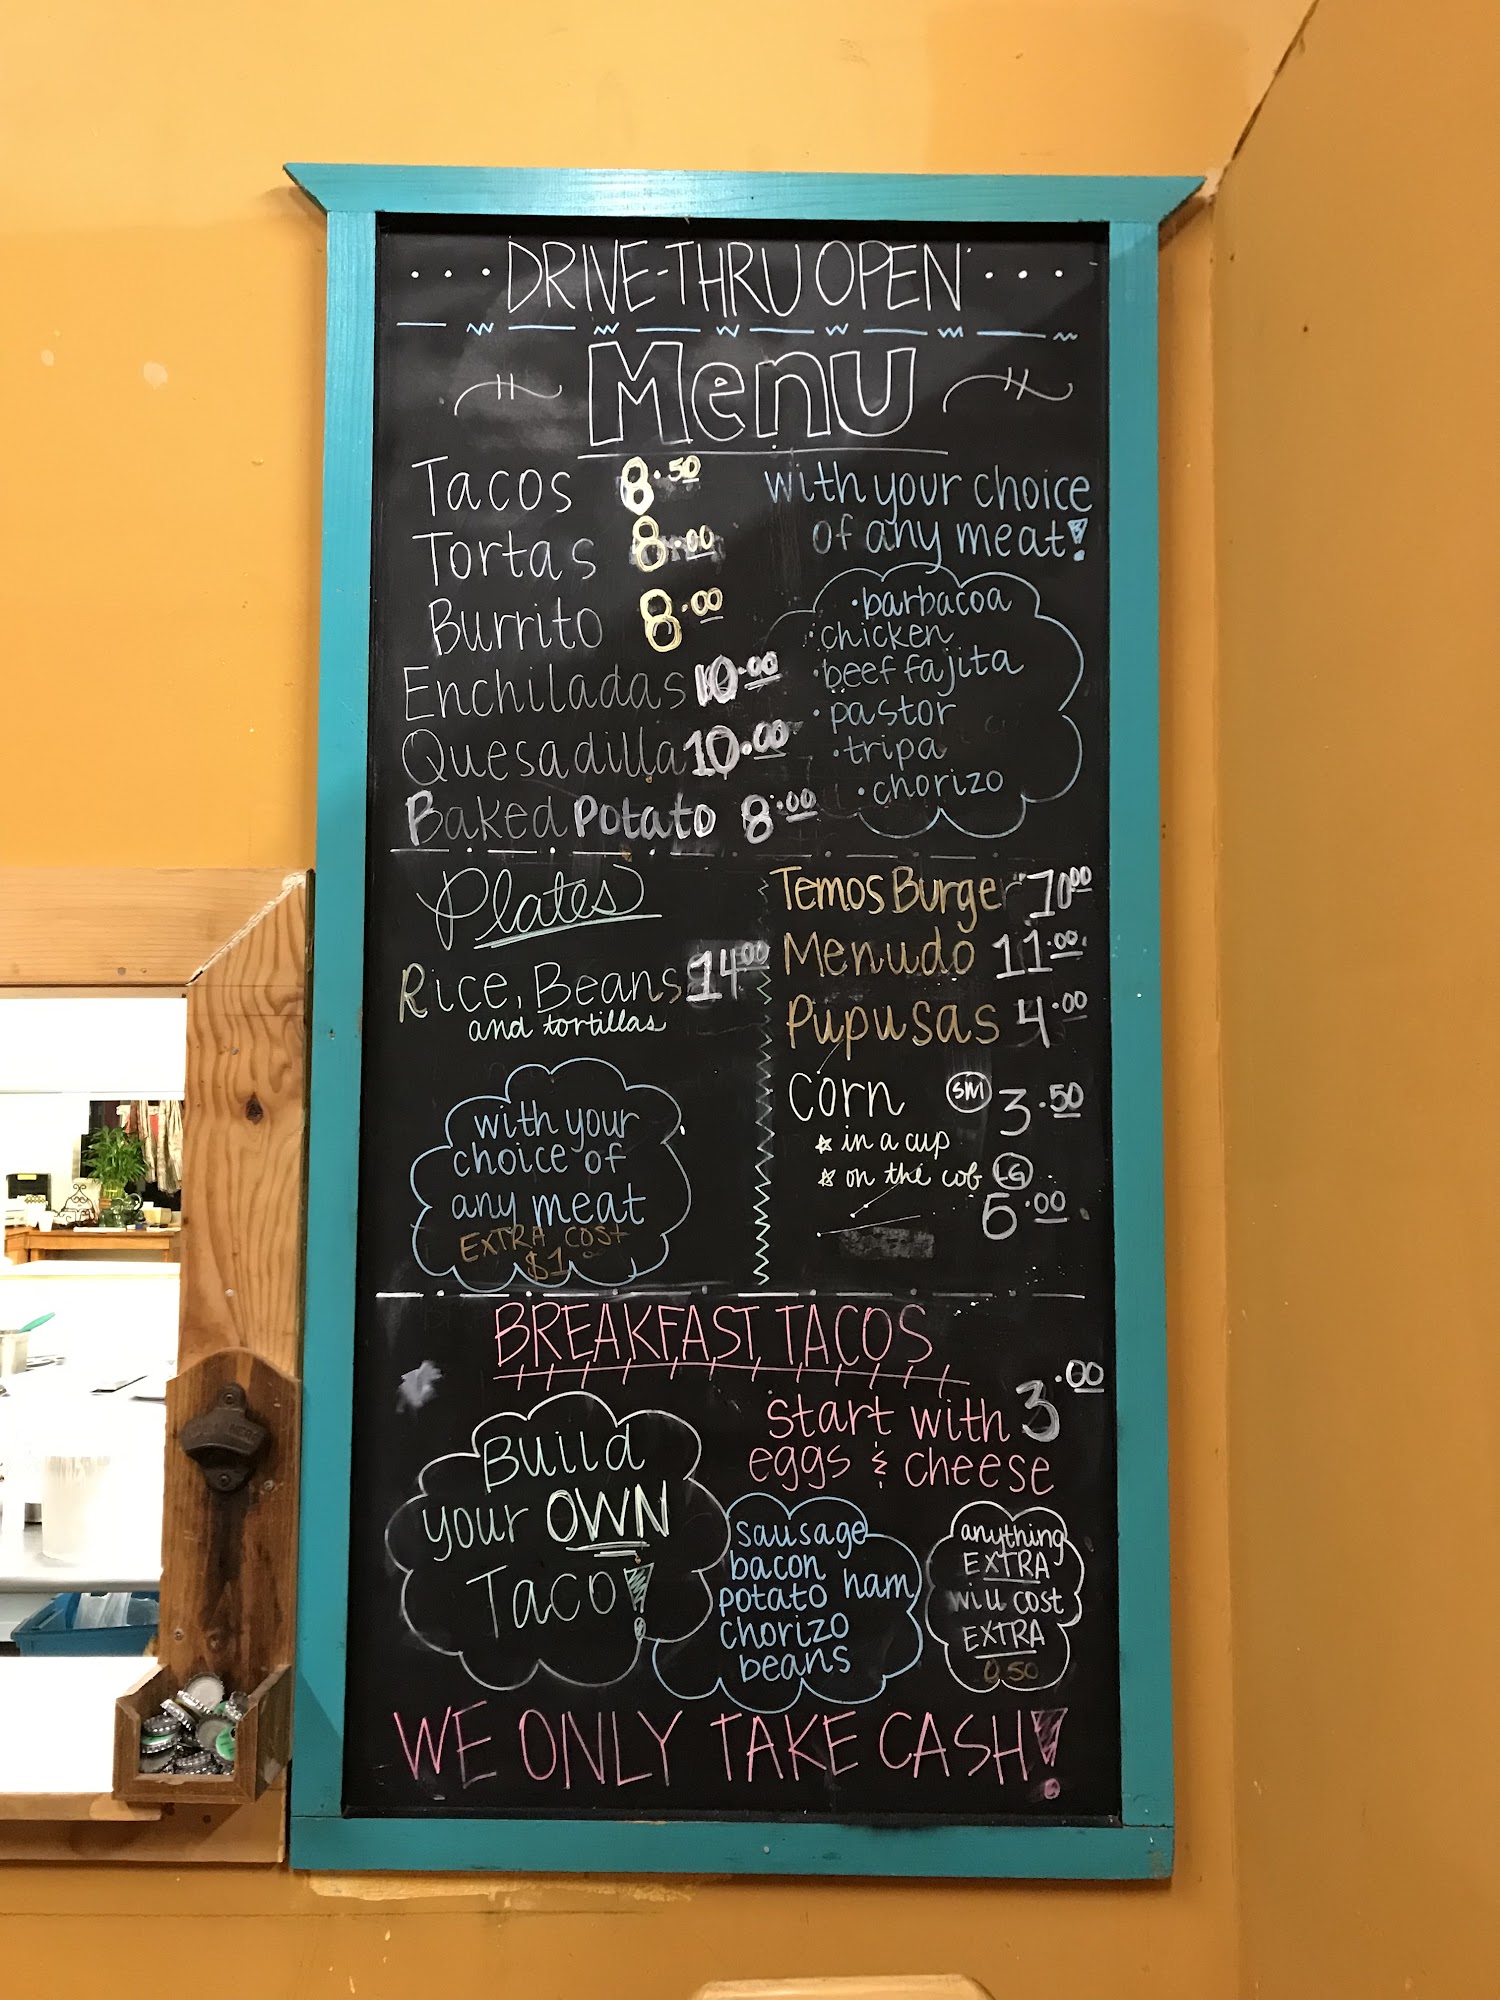 DRIVE-THRU OPEN
Menu
Tacos 8.50
Tortas 8.00
Burrito 8.00
Enchiladas 10.00
Quesadilla 10.00
Baked Potato 8.00
with your choice
of any meat!
• barbacoa
• chicken
• beef fajita
• pastor
• tripa
• chorizo
Plates
Rice, Beans 14.00
and tortillas
with your
choice of
any meat
EXTRA COST
$1.00
Temos Burger 10.00
Menudo 11.00
Pupusas 4.00
Corn SM 3.50
☆ in a cup
☆ on the cob LG
5.00
BREAKFAST TACOS
start with 3.00
eggs & cheese
Build
your OWN
Taco!
sausage
bacon
potato ham
chorizo
beans
anything
EXTRA
will cost
EXTRA
0.50
WE ONLY TAKE CASH!